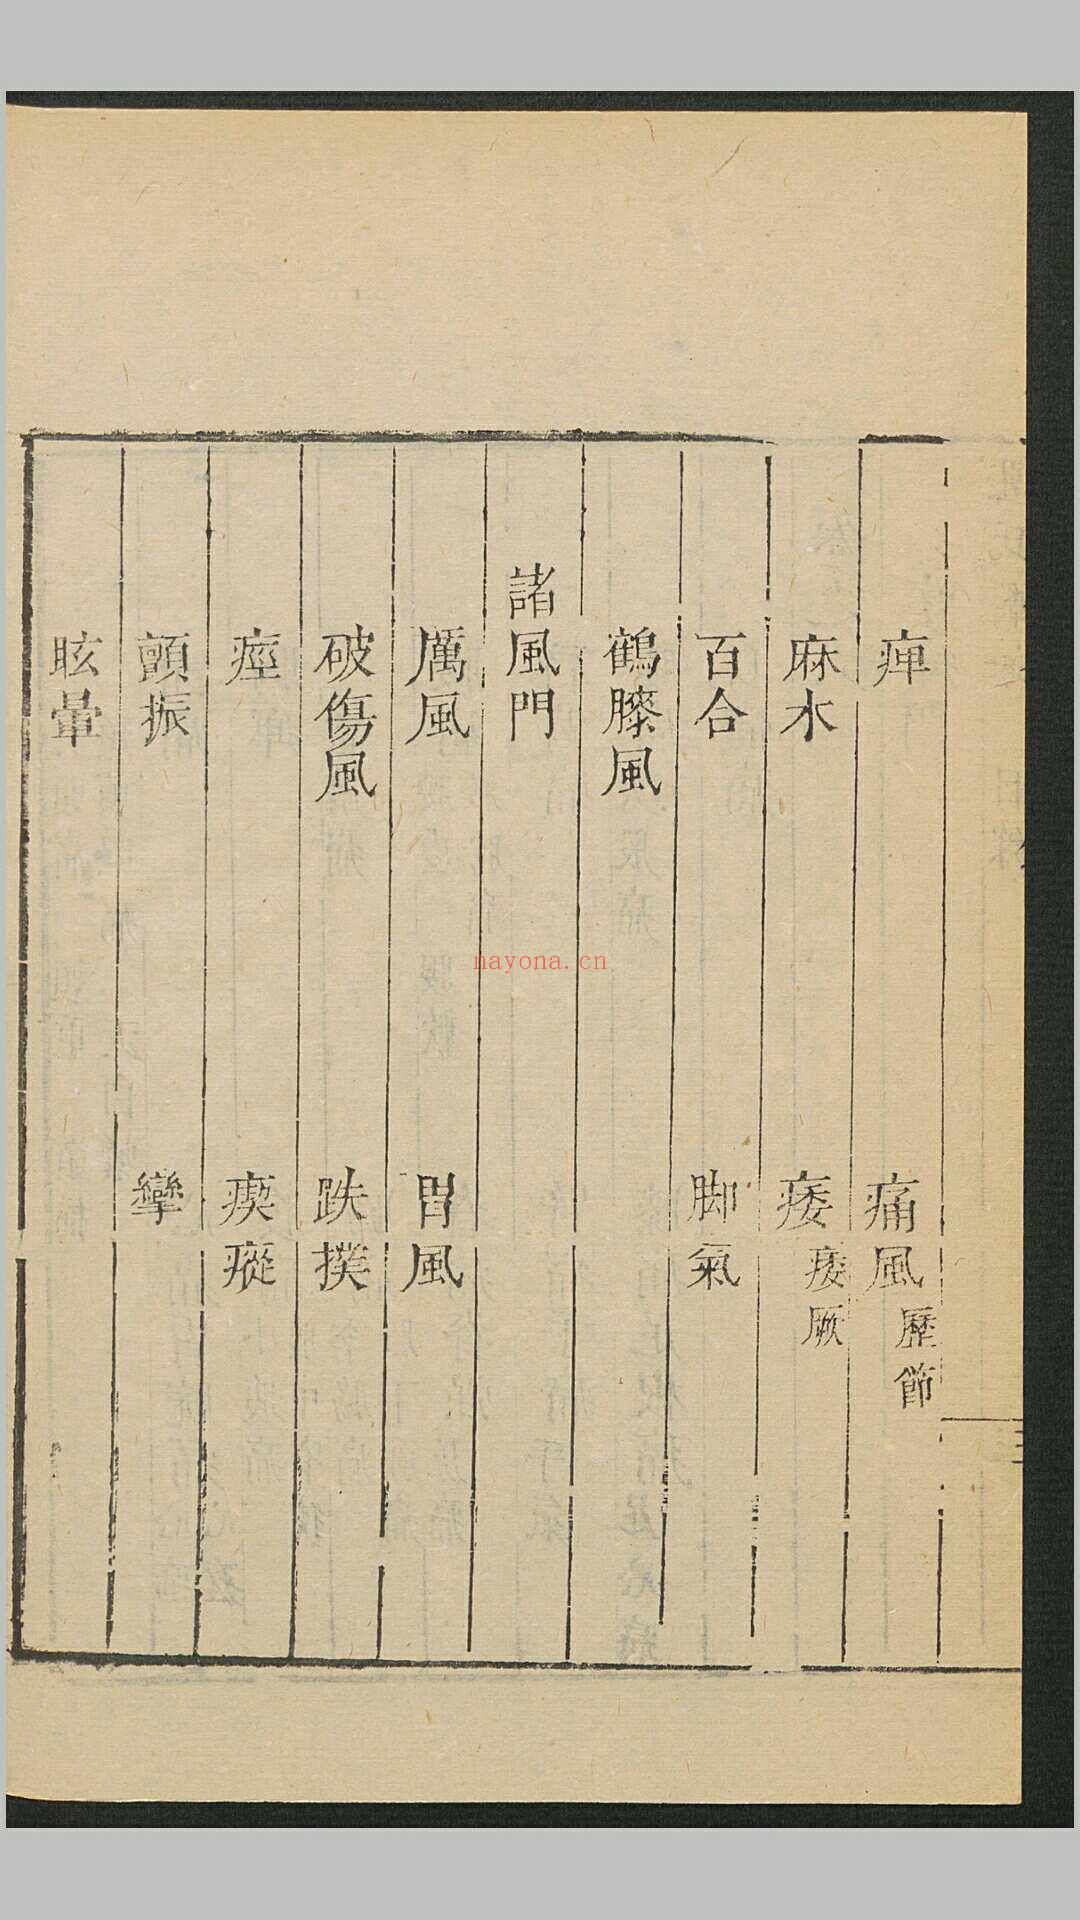 痺 痛風 歷節
麻木 痿 痿厥
百合 脚氣
鶴膝風
諸風門
厲風 胃風
破傷風 跌撲
痙 瘈瘲
顫振 攣
眩暈
nayona.cn